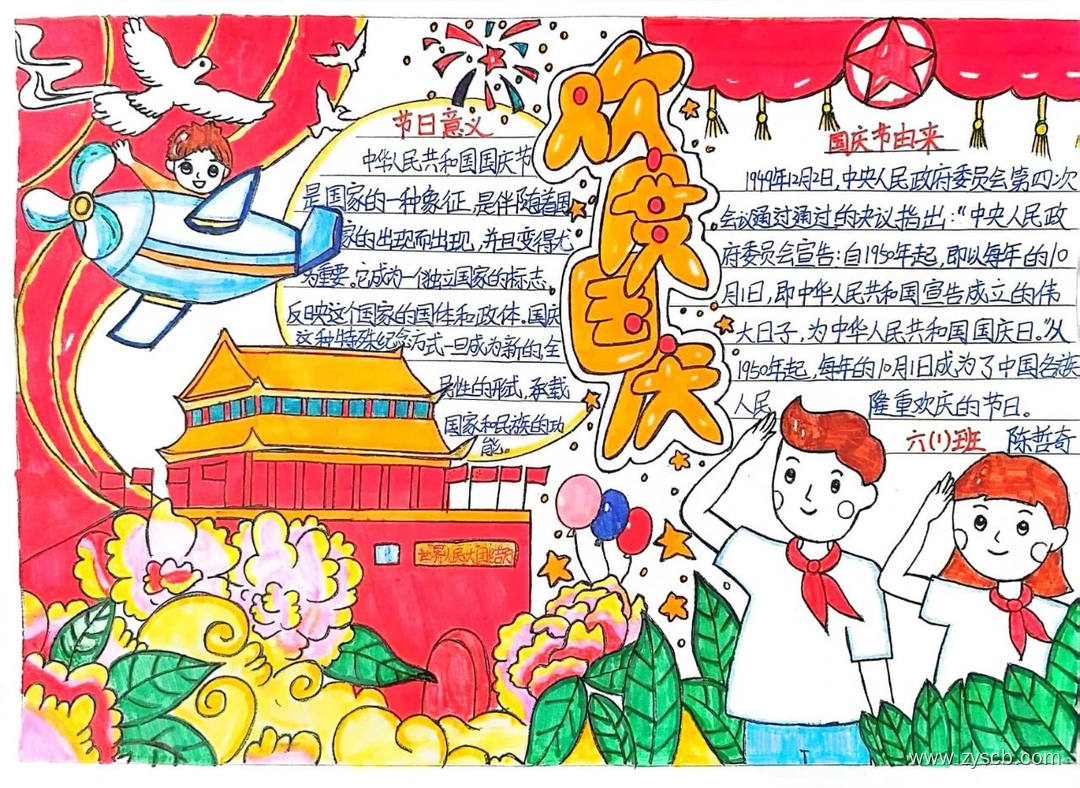 欢度国庆
节日意义
中华人民共和国国庆节
是国家的一种象征,是伴随着国
家的出现而出现,并且变得尤
为重要。它成为一个独立国家的标志,
反映这个国家的国体和政体。国庆
这种特殊纪念方式一旦成为新的、全
民性的形式,承载
国家和民族的功
能。
世界人民大团结
国庆节由来
1949年12月2日,中央人民政府委员会第四次
会议通过通过的决议指出:“中央人民政
府委员会宣告:自1950年起,即以每年的10
月1日,即中华人民共和国宣告成立的伟
大日子,为中华人民共和国国庆日。”从
1950年起,每年的10月1日成为了中国各族
人民 隆重欢庆的节日。
六(1)班 陈哲奇
www.zyscb.com